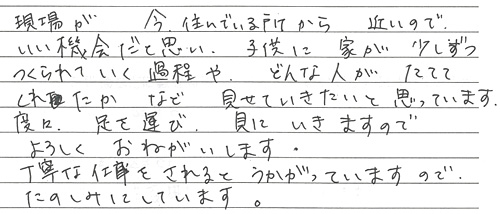 現場が 今、住んでいる所から 近いので、
いい機会だと思い、子供に 家が 少しずつ
つくられていく過程や、どんな人が たてて
くれたか など 見せていきたいと思っています。
度々、足を運び、見に いきますので
よろしく おねがいします。
丁寧な仕事をされると うかがっていますので、
たのしみにしています。